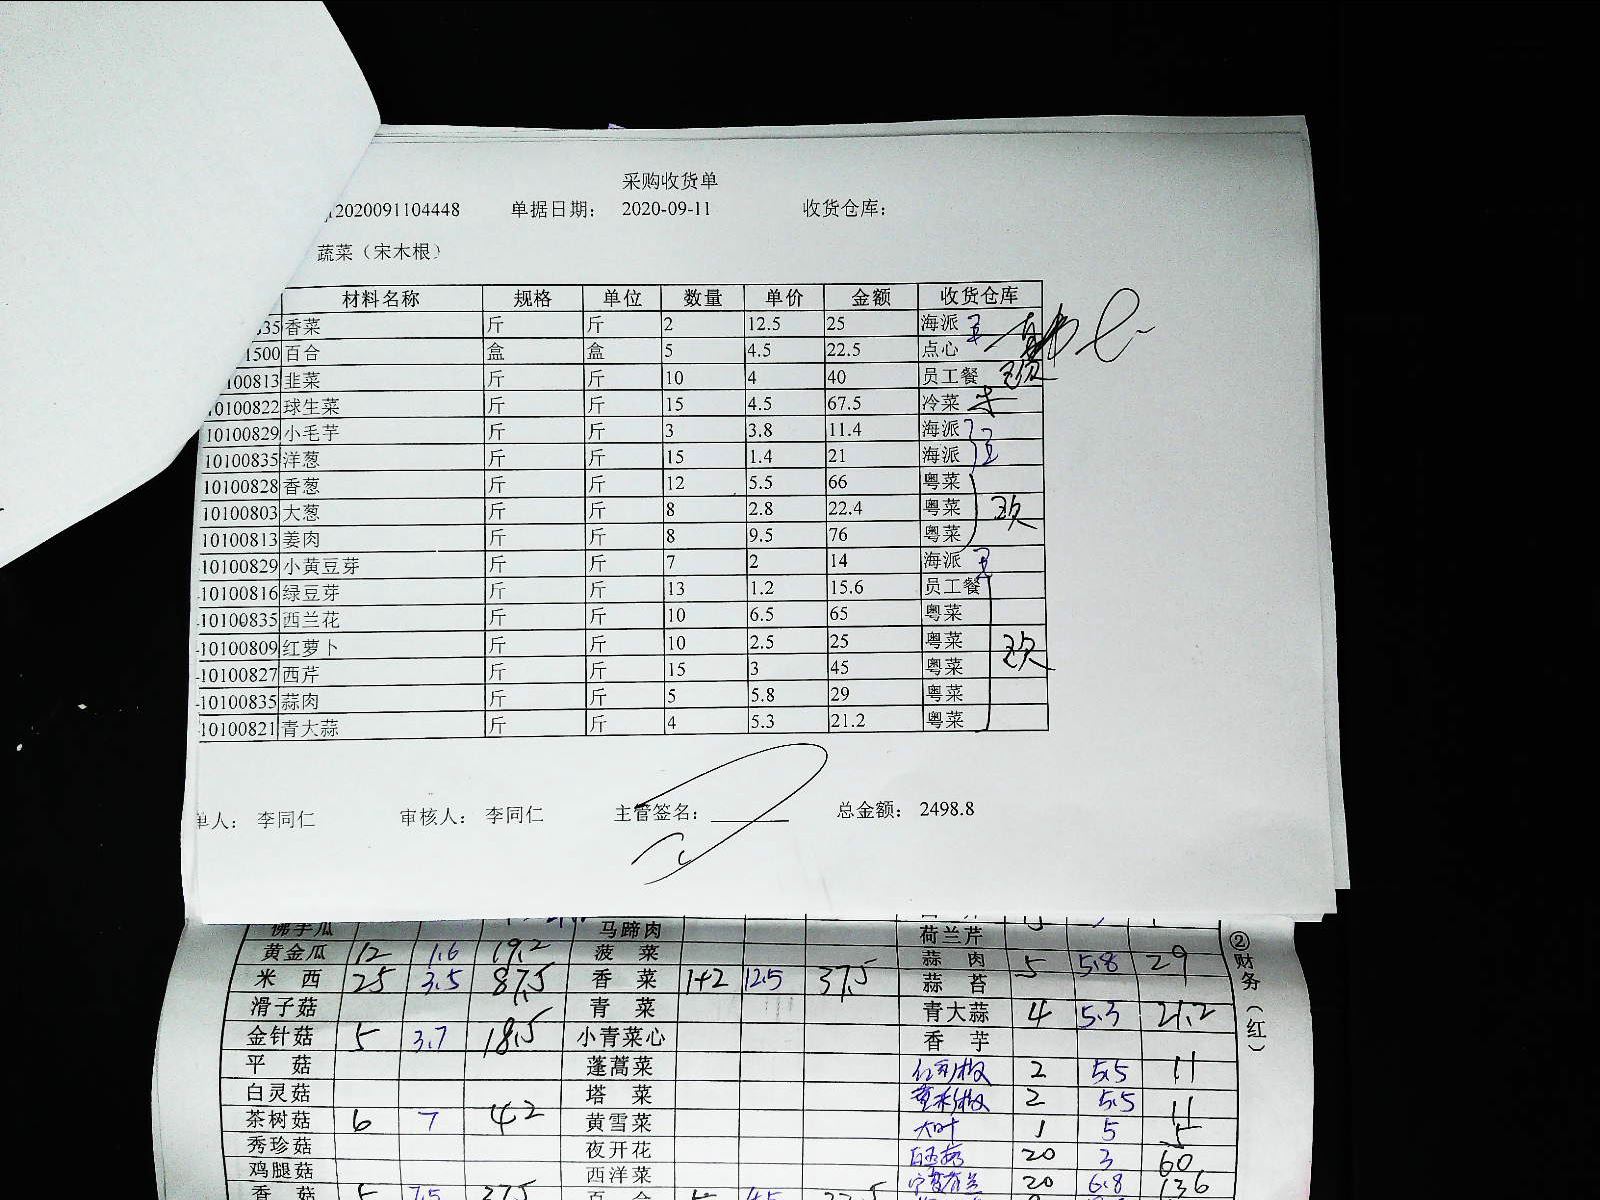 采购收货单
2020091104448 单据日期： 2020-09-11 收货仓库：
蔬菜（宋木根）
材料名称 规格 单位 数量 单价 金额 收货仓库
835 香菜 斤 斤 2 12.5 25 海派
1500 百合 盒 盒 5 4.5 22.5 点心
100813 韭菜 斤 斤 10 4 40 员工餐
10100822 球生菜 斤 斤 15 4.5 67.5 冷菜
10100829 小毛芋 斤 斤 3 3.8 11.4 海派
10100835 洋葱 斤 斤 15 1.4 21 海派
10100828 香葱 斤 斤 12 5.5 66 粤菜
10100803 大葱 斤 斤 8 2.8 22.4 粤菜
10100813 姜肉 斤 斤 8 9.5 76 粤菜
-10100829 小黄豆芽 斤 斤 7 2 14 海派
-10100816 绿豆芽 斤 斤 13 1.2 15.6 员工餐
-10100835 西兰花 斤 斤 10 6.5 65 粤菜
-10100809 红萝卜 斤 斤 10 2.5 25 粤菜
-10100827 西芹 斤 斤 15 3 45 粤菜
-10100835 蒜肉 斤 斤 5 5.8 29 粤菜
-10100821 青大蒜 斤 斤 4 5.3 21.2 粤菜
单人： 李同仁 审核人： 李同仁 主管签名： 总金额： 2498.8
佛手瓜 马蹄肉 荷兰芹
黄金瓜 12 1.6 19.2 菠菜 蒜肉 5 5.8 29
米西 25 3.5 87.5 香菜 1+2 12.5 37.5 蒜苔
滑子菇 青菜 青大蒜 4 5.3 21.2
金针菇 5 3.7 18.5 小青菜心 香芋
平菇 蓬蒿菜 2 5.5 11
白灵菇 塔菜 2 5.5 11
茶树菇 6 7 42 黄雪菜 大叶 1 5 5
秀珍菇 夜开花 20 3 60
鸡腿菇 西洋菜 20 6.8 136
香菇 5 7.5 37.5 百合 4.5 22.5
②财务（红）